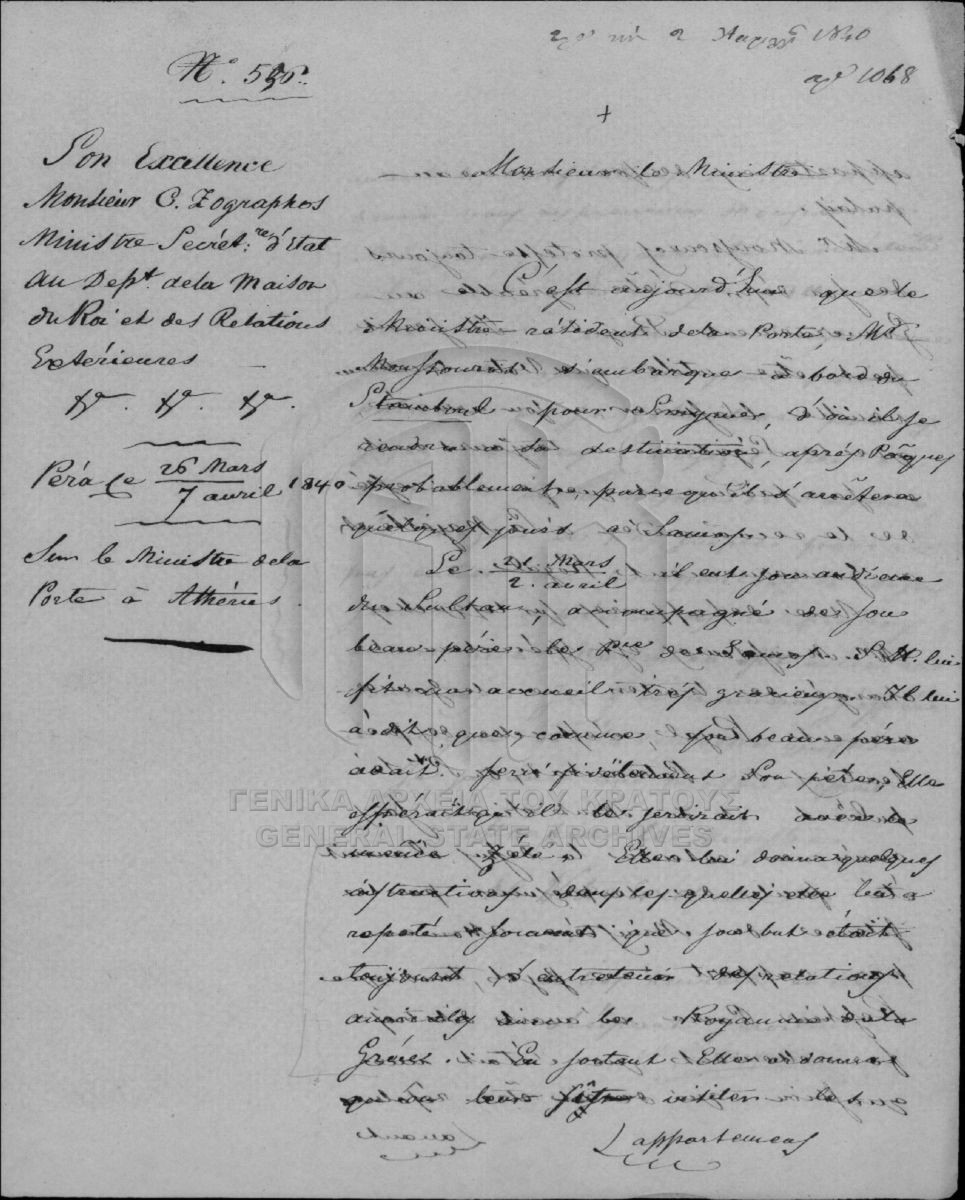 1840
1068
N.° 596.
+
Son Excellence
Monsieur C. Zographos
Ministre Secrét:re d'Etat
au Dept. de la Maison
du Roi et des Relations
Extérieures
Péra le 26 Mars / 7 avril 1840
Sur le Ministre de la
Porte à Athénes.
Monsieur le Ministre
C'est aujourd'hui que le
Ministre résident de la Porte, Mr.
Moussouros s'embarque à bord du
Stamboul pour Smyrne, d'où il se
rendra à sa destination, après Pâques
probablement, parce qu'il s'arrêtera
quelques jours à Samos.
Le 21 Mars / 2 avril il eut son audience
du Sultan, accompagné de son
beau père le Pce de Samos. S. H. lui
fit un accueil très gracieux. Il lui
a dit, que comme son beau père
avait servi fidèlement Son père, Elle
esperait qu'il le servirait avec le
même zèle. Elle lui donna quelques
instructions dans les quelles elle a
repeté souvent que son but était
toujours d'entretenir des relations
amicales avec le Royaume de la
Gréce. En sortant Elle ordonna
qu'on leur fît visiter les
appartemens
ΓΕΝΙΚΑ ΑΡΧΕΙΑ ΤΟΥ ΚΡΑΤΟΥΣ
GENERAL STATE ARCHIVES